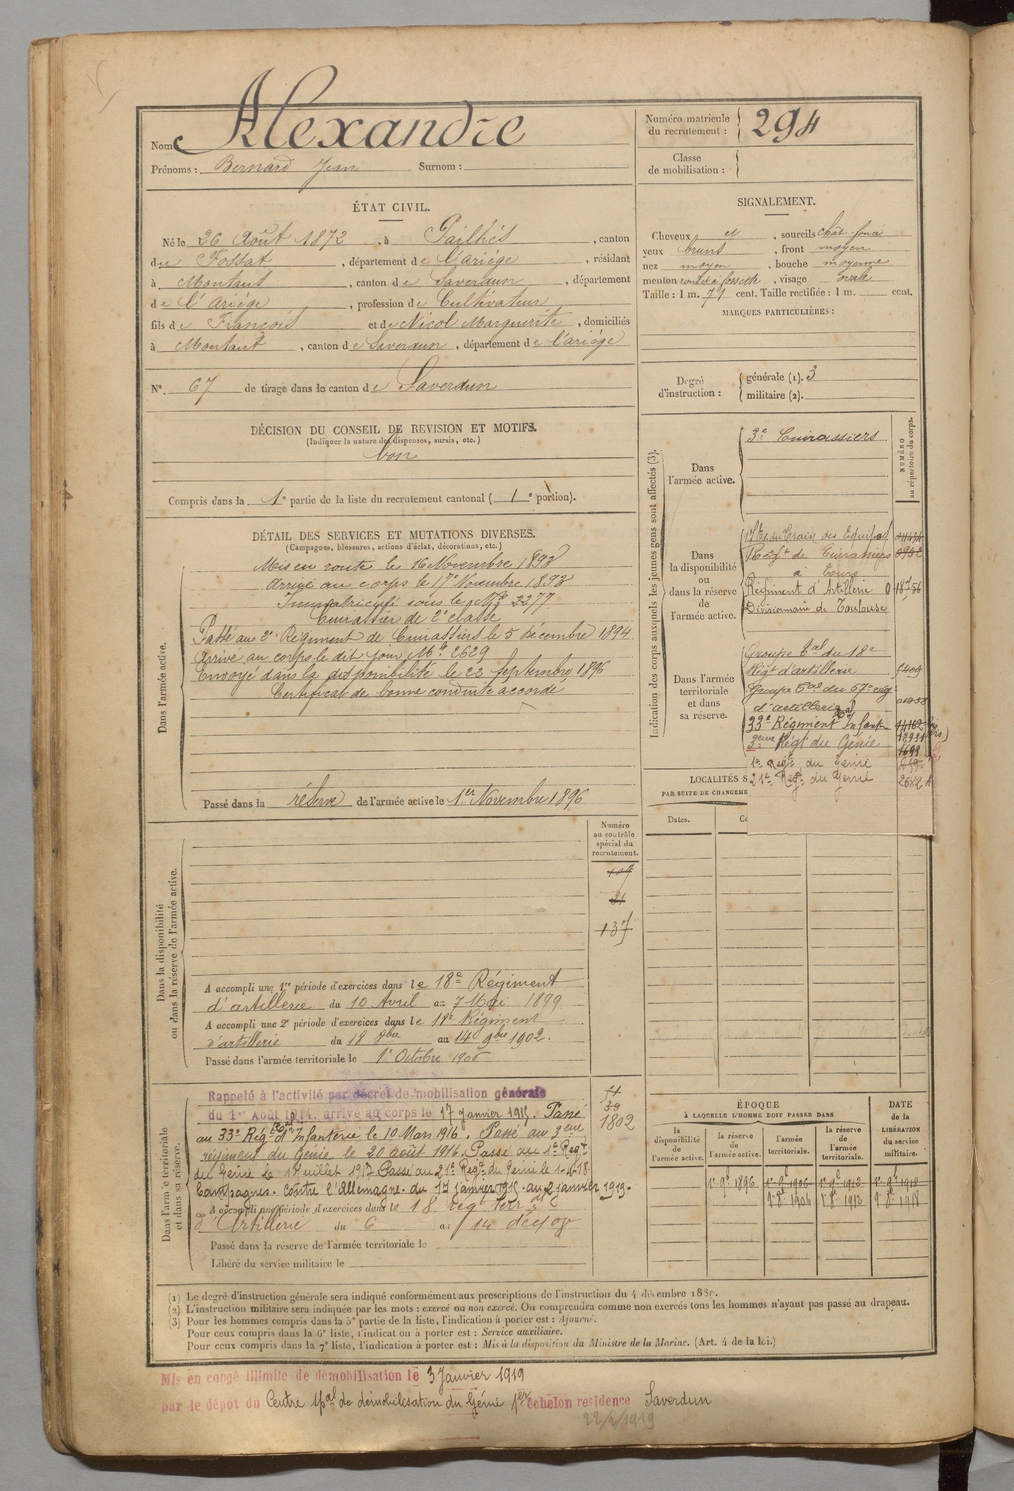 Nom Alexandre
Prénoms : Bernard Jean Surnom :
ÉTAT CIVIL.
Né le 26 Août 1872, à Pailhès, canton
du Fossat, département de l'Ariège, résidant
à Montaut, canton de Saverdun, département
de l'Ariège, profession de Cultivateur
fils de François et de Nicol Marguerite, domiciliés
à Montaut, canton de Saverdun, département de l'ariège
N°. 67 de tirage dans le canton de Saverdun
DÉCISION DU CONSEIL DE REVISION ET MOTIFS.
(Indiquer la nature des dispenses, sursis, etc.)
bon
Compris dans la 1e partie de la liste du recrutement cantonal (1e portion).
DÉTAIL DES SERVICES ET MUTATIONS DIVERSES.
(Campagnes, blessures, actions d'éclat, décorations, etc.)
Dans l'armée active.
Mis en route le 16 Novembre 1893
Arrivé au corps le 17 Novembre 1893
Immatriculé sous le N° 3277
Cuirassier de 2e classe
Passé au 2e Régiment de Cuirassiers le 5 décembre 1894
Arrivé au corps le dit jour Mle 2629
Envoyé dans la disponibilité le 23 Septembre 1896
Certificat de bonne conduite accordé
Passé dans la réserve de l'armée active le 1er Novembre 1896
Dans la disponibilité
ou dans la réserve de l'armée active.
Numéro
au contrôle
spécial du
recrutement.
137
A accompli une 1re période d'exercices dans le 18e Régiment
d'artillerie du 10 Avril au 7 Mai 1899
A accompli une 2e période d'exercices dans le 18e Régiment
d'artillerie du 18 8bre au 14 9bre 1902.
Passé dans l'armée territoriale le 1er Octobre 1906
Dans l'armée territoriale
et dans sa réserve.
Rappelé à l'activité par décret de mobilisation générale
du 1er Août 1914, arrivé au corps le 17 janvier 1915. Passé
au 33e Régt d'Infanterie le 10 Mars 1916. Passé au 3ème
régiment du Génie le 20 août 1916. Passé au 1er Régt
du Génie le 1 Juillet 1917 Passé au 21e Régt du Génie le 1-4-18.
Campagnes. Contre l'Allemagne. du 17 janvier 1915 au 2 janvier 1919.
1802
A accompli une période d'exercices dans le 18 régt terral
d'Artillerie du 6 au 14 déc 07
Passé dans la réserve de l'armée territoriale le
Libéré du service militaire le
Numéro matricule
du recrutement : 294
Classe
de mobilisation :
SIGNALEMENT.
Cheveux et, sourcils chât. foncé
yeux bruns, front moyen
nez moyen, bouche moyenne
menton rond à fossette, visage ovale
Taille : 1 m. 71 cent. Taille rectifiée : 1 m. cent.
MARQUES PARTICULIÈRES :
Degré
d'instruction :
générale (1). 3
militaire (2).
Indication des corps auxquels les jeunes gens sont affectés (3).
NUMÉRO
au répertoire du corps.
Dans
l'armée active.
3e Cuirassiers
Dans
la disponibilité
ou
dans la réserve
de
l'armée active.
Régt de Cuirassiers
à Tours
Régiment d'Artillerie
Divisionnaire de Toulouse
Dans l'armée
territoriale
et dans
sa réserve.
Groupe tal du 18e
Régt d'artillerie
Groupe tal du 57e rég
d'artillerie
33e Régiment Infante
3ème Régt du Génie
1er Régt du Génie
21e Régt du Génie
LOCALITÉS S
PAR SUITE DE CHANGEME
Dates.
ÉPOQUE
À LAQUELLE L'HOMME DOIT PASSER DANS
DATE
de la
LIBÉRATION
du service
militaire.
la
disponibilité
de
l'armée active.
la réserve
de
l'armée active.
l'armée
territoriale.
la réserve
de l'armée
territoriale.
(1) Le degré d'instruction générale sera indiqué conformément aux prescriptions de l'instruction du 4 décembre 1889.
(2) L'instruction militaire sera indiquée par les mots : exercé ou non exercé. On comprendra comme non exercés tous les hommes n'ayant pas passé au drapeau.
(3) Pour les hommes compris dans la 5e partie de la liste, l'indication à porter est : Ajourné.
Pour ceux compris dans la 6e liste, l'indication à porter est : Service auxiliaire.
Pour ceux compris dans la 7e liste, l'indication à porter est : Mis à la disposition du Ministre de la Marine. (Art. 4 de la loi.)
Mis en congé illimité de démobilisation le 3 Janvier 1919
par le dépôt du Centre spal de démobilisation du Génie 1er échelon résidence Saverdun